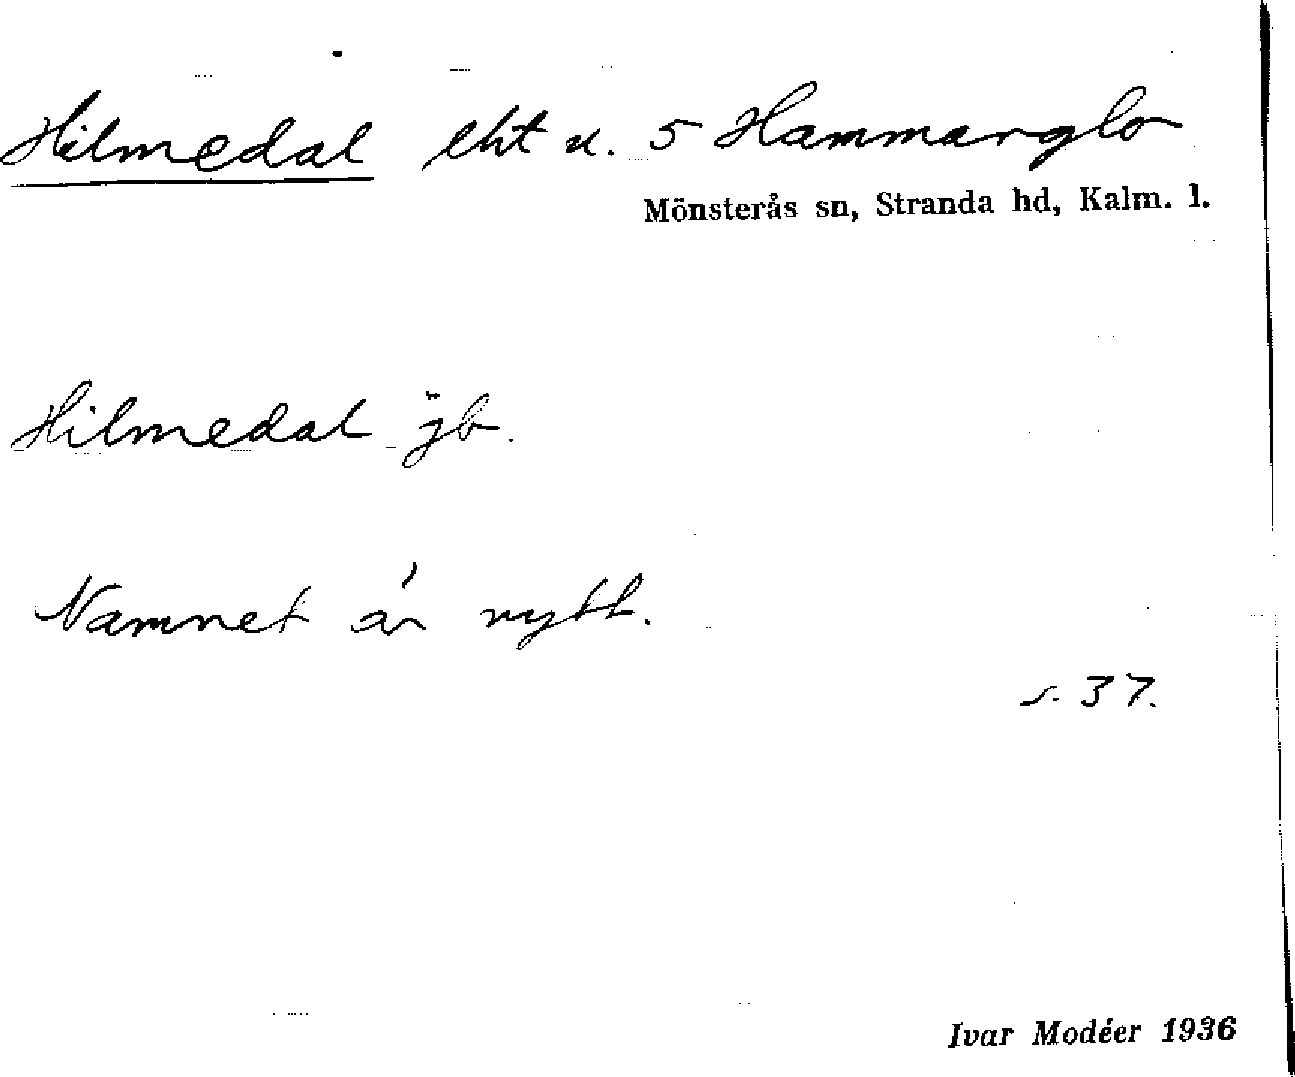 Hilmedal lht u. 5 Hammarglo
Mönsterås sn, Stranda hd, Kalm. l.
Hilmedal jb.
Namnet är nytt.
s. 37.
Ivar Modéer 1936